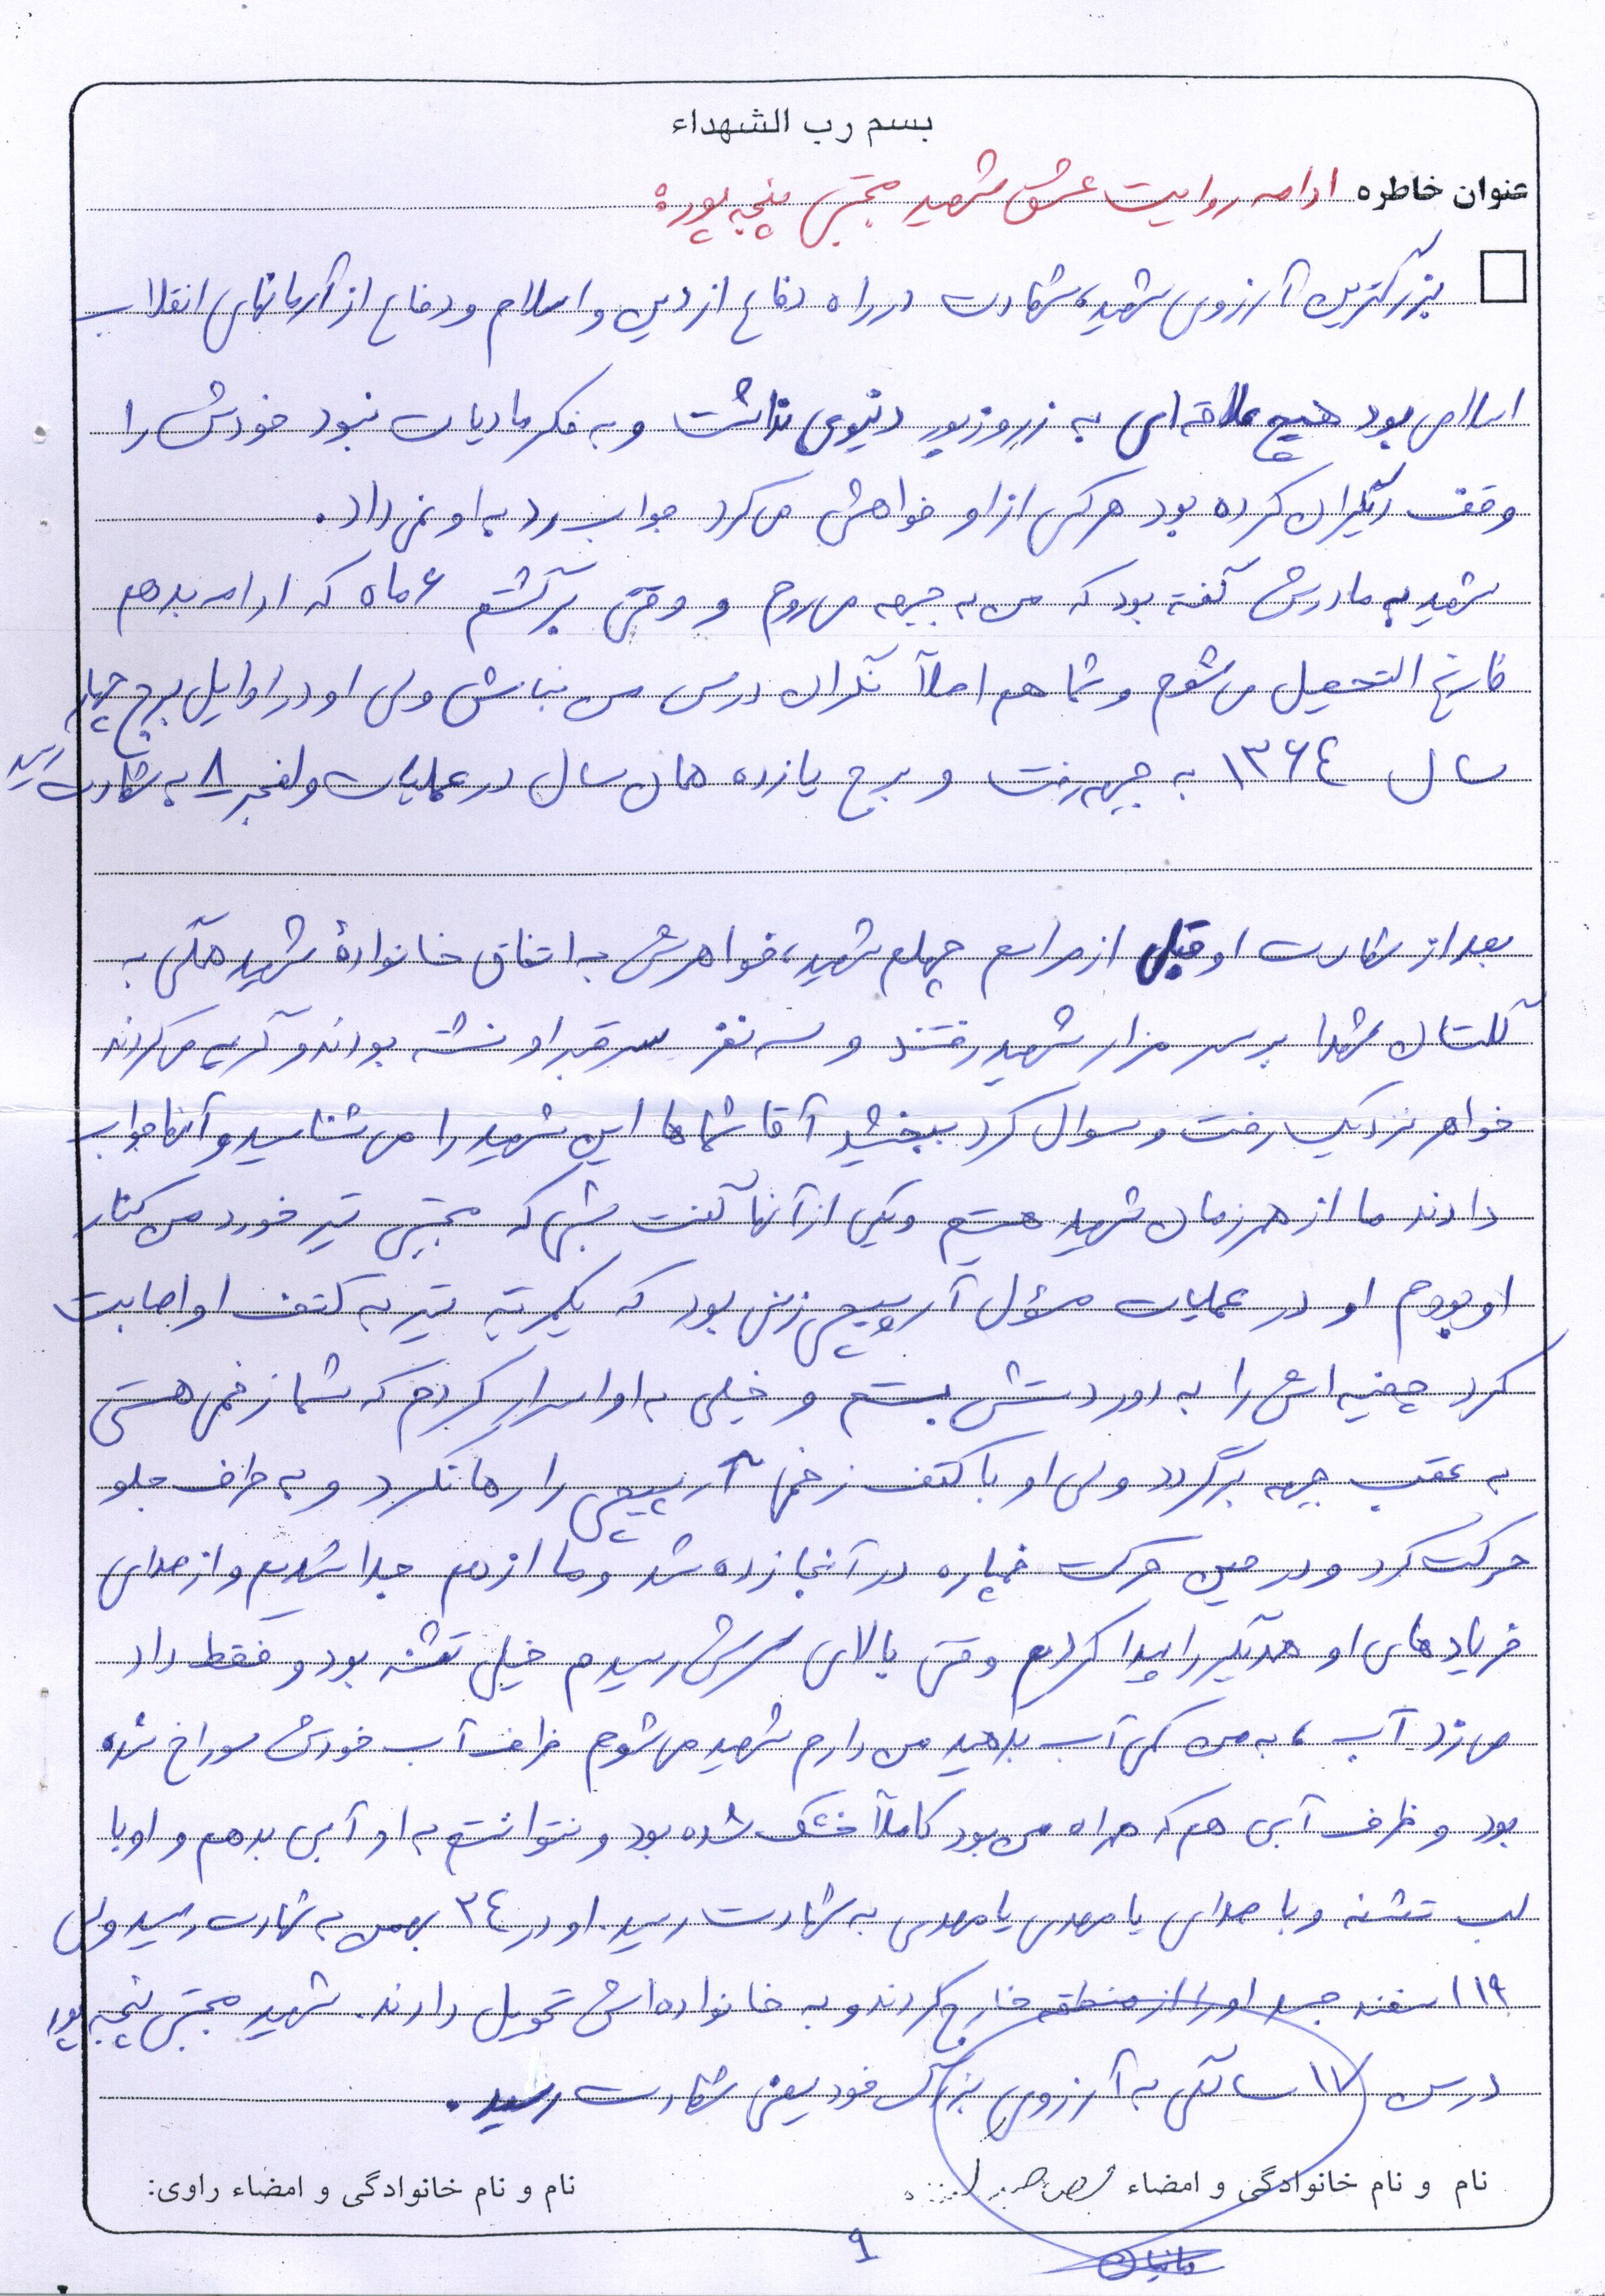 بسم رب الشهداء
عنوان خاطره ادامه روایت عشق شهید مجتبی پنجه پوره
بزرگترین آرزوی شهید، شهادت در راه دفاع از دین و اسلام و دفاع از آرمانهای انقلاب
اسلامی بود هیچ علاقه ای به زر و زیور دنیوی نداشت و به فکر مادیات نبود خودش را
وقف دیگران کرده بود هر کس از او خواهش می کرد جواب رد به او نمی داد.
شهید به مادرش گفته بود که من به جبهه می روم و وقتی برگشتم ۶ ماه که ادامه بدهم
فارغ التحصیل می شوم و شما هم اصلاً نگران درس من نباش ولی او در اوایل برج چهار
سال ۱۳۶۴ به جبهه رفت و برج یازده همان سال در عملیات ولفجر ۸ به شهادت رسید
بعد از شهادت او قبل از مراسم چهلم شهید، خواهرش به اتفاق خانوادهٔ شهید همگی به
گلستان شهدا بر سر مزار شهید رفتند و سه نفر سر قبر او نشسته بودند و گریه می کردند
خواهر نزدیک رفت و سوال کرد ببخشید آقا شماها این شهید را می شناسید و آنها جواب
دادند ما از همرزمان شهید هستیم و یکی از آنها گفت شبی که مجتبی تیر خورد من کنار
او بودم او در عملیات مسؤل آرپیجی زنی بود که یکمرتبه تیر به کتف او اصابت
کرد چفیه اش را به دور دستش بستم و خیلی به او اسرار کردم که شما زخمی هستی
به عقب جبهه برگرد ولی او با کتف زخمی آرپیجی را رها نکرد و به طرف جلو
حرکت کرد و در حین حرکت خمپاره در آنجا زده شد و ما از هم جدا شدیم و از صدای
فریادهای او همدیگر را پیدا کردیم وقتی بالای سرش رسیدم خیلی تشنه بود و فقط داد
می زد آب ، به من کمی آب بدهید من دارم شهید می شوم ظرف آب خودش سوراخ شده
بود و ظرف آبی هم که همراه من بود کاملاً خشک شده بود و نتوانستم به او آبی بدهم و او با
لب تشنه و با صدای یا مهدی یا مهدی به شهادت رسید. او در ۲۴ بهمن به شهادت رسید ولی
۱۹ اسفند جسد او را از منطقه خارج کردند و به خانواده اش تحویل دادند. شهید مجتبی پنجه پور
در سن ۱۷ سالگی به آرزوی بزرگ خود یعنی شهادت رسید.
نام و نام خانوادگی و امضاء
نام و نام خانوادگی و امضاء راوی:
۹